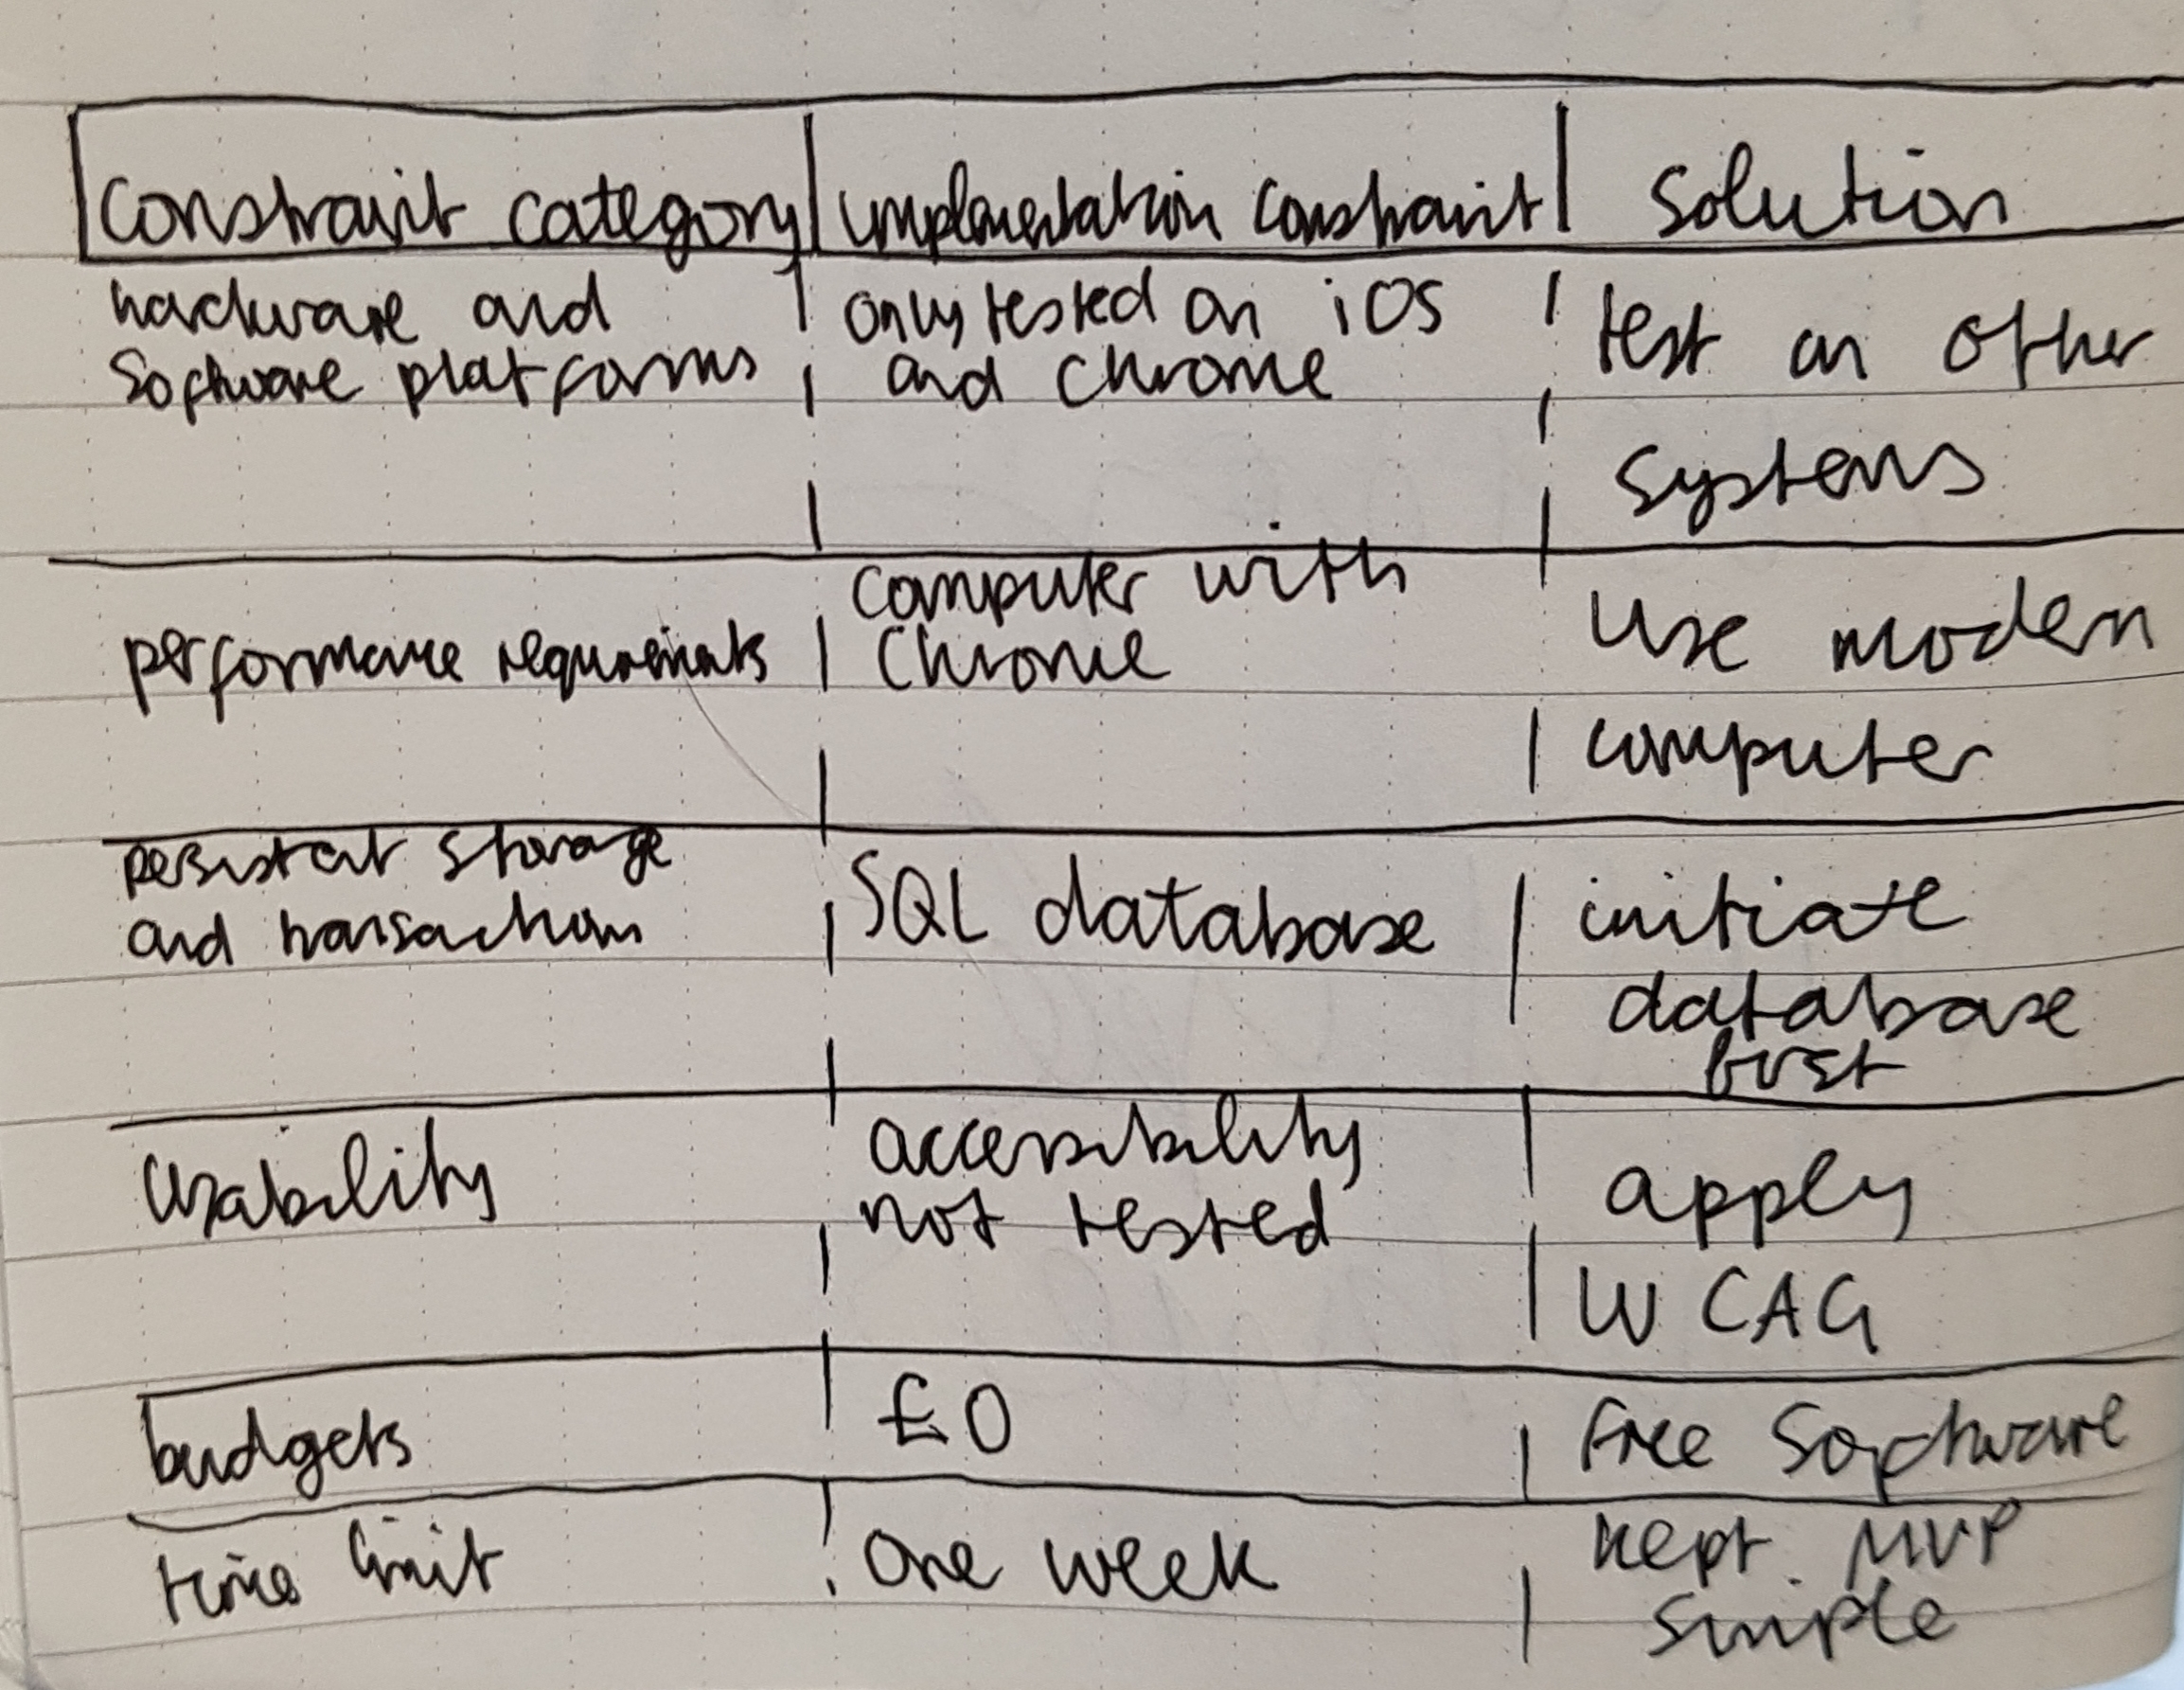 Constraint category implementation constraint Solution
hardware and
software platforms
only tested on iOS
and Chrome
test on other
systems
performance requirements
computer with
Chrome
use modern
computer
persistent storage
and transactions
SQL database
initiate
database
first
Usability
accessibility
not tested
apply
WCAG
budgets
£0
free software
time limit
one week
kept MVP
simple